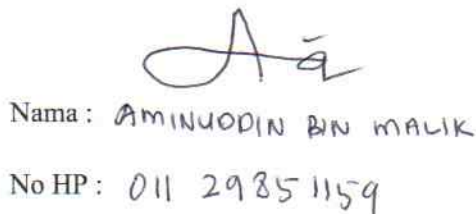 Nama : AMINUDDIN BIN MALIK
No HP : 011 29851159